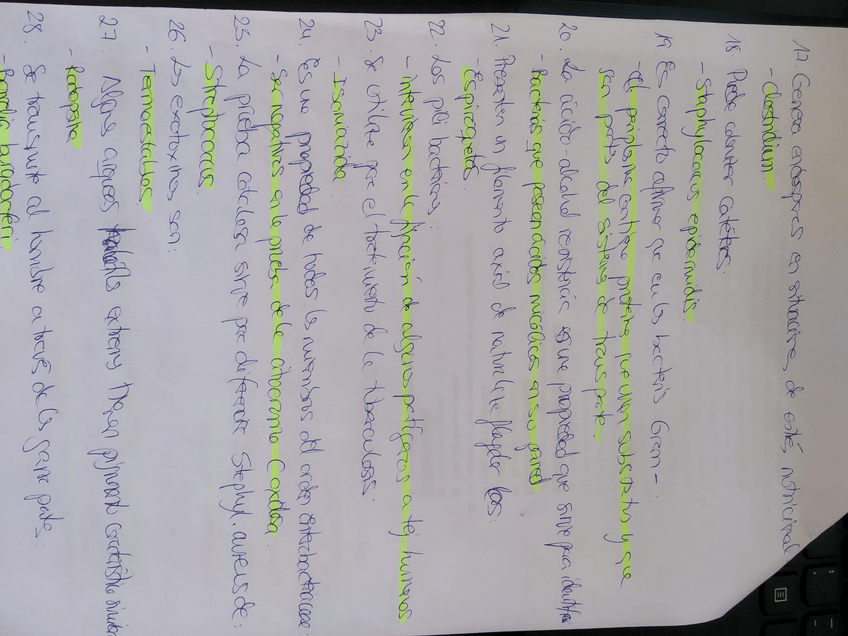 17. Genera endosporas en situaciones de estrés nutricional
- Clostridium.
18. Puede colonizar catéteres:
- Staphylococcus epidermidis.
19. Es correcto afirmar que en las bacterias Gram -:
- El periplasma contiene proteinas que unen substratos y que
son partes del sistema de transporte.
20. La ácido-alcohol resistencia es una propiedad que sirve para identificar
- Bacterias que poseen ácidos micólicos en su pared
21. Presentan un filamento axial de naturaleza flagelar las:
- Espiroquetas.
22. Los pili bacterianos:
- intervienen en la fijación de algunos patógenos a tej. humanos
23. Se utiliza para el tratamiento de la tuberculosis:
- Isoniazida
24. Es una propiedad de todos los miembros del orden enterobacteriaceae:
- Ser negativos en la prueba de la citocromo C oxidasa
25. La prueba catalasa sirve para diferenciar Staphyl. aureus de:
- Streptococcus
26. Las exotoxinas son:
- Termoestables
27. Algunas arqueas extrem tienen pigmento
28. Se transmite al hombre a través de la garrapata:
- Borrelia burgdorferi